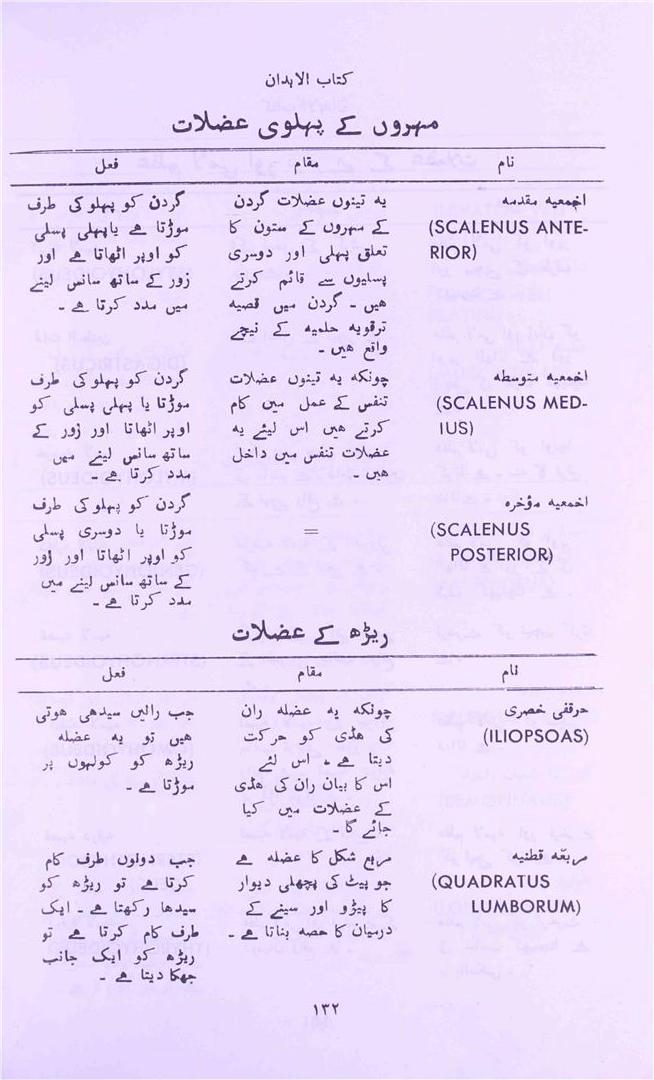 کتاب الابدان
مہروں کے پہلوی عضلات
نام مقام فعل
اخمعیہ مقدمہ
(SCALENUS ANTE-
RIOR)
یہ تینوں عضلات گردن
کے مہروں کے ستون کا
تعلق پہلی اور دوسری
پسلیوں سے قائم کرتے
ہیں ـ گردن میں قصیہ
ترقویہ حلمیہ کے نیچے
واقع ہیں ـ
گردن کو پہلو کی طرف
موڑتا ہے یا پہلی پسلی
کو اوپر اٹھاتا ہے اور
زور کے ساتھ سانس لینے
میں مدد کرتا ہے ـ
اخمعیہ متوسطہ
(SCALENUS MED-
IUS)
چونکہ یہ تینوں عضلات
تنفس کے عمل میں کام
کرتے ہیں اس لیئے یہ
عضلات تنفس میں داخل
ہیں ـ
گردن کو پہلو کی طرف
موڑتا یا پہلی پسلی کو
اوپر اٹھاتا اور زور کے
ساتھ سانس لینے میں
مدد کرتا ہے ـ
اخمعیہ مؤخرہ
(SCALENUS
POSTERIOR)
=
گردن کو پہلو کی طرف
موڑتا یا دوسری پسلی
کو اوپر اٹھاتا اور زور
کے ساتھ سانس لینے میں
مدد کرتا ہے ـ
ریڑھ کے عضلات
نام مقام فعل
حرقفی خصری
(ILIOPSOAS)
چونکہ یہ عضلہ ران
کی ہڈی کو حرکت
دیتا ہے ـ اس لئے
اس کا بیان ران کی ہڈی
کے عضلات میں کیا
جائے گا ـ
جب رانیں سیدھی ہوتی
ہیں تو یہ عضلہ
ریڑھ کو کولہوں پر
موڑتا ہے ـ
مربعّہ قطنیہ
(QUADRATUS
LUMBORUM)
مربع شکل کا عضلہ ہے
جو پیٹ کی پچھلی دیوار
کا پیڑو اور سینے کے
درمیان کا حصہ بناتا ہے ـ
جب دونوں طرف کام
کرتا ہے تو ریڑھ کو
سیدھا رکھتا ہے ـ ایک
طرف کام کرتا ہے تو
ریڑھ کو ایک جانب
جھکا دیتا ہے ـ
۱۳۲